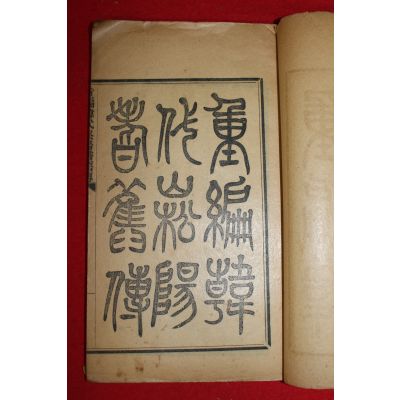 重編韓
代崧陽
耆舊傳